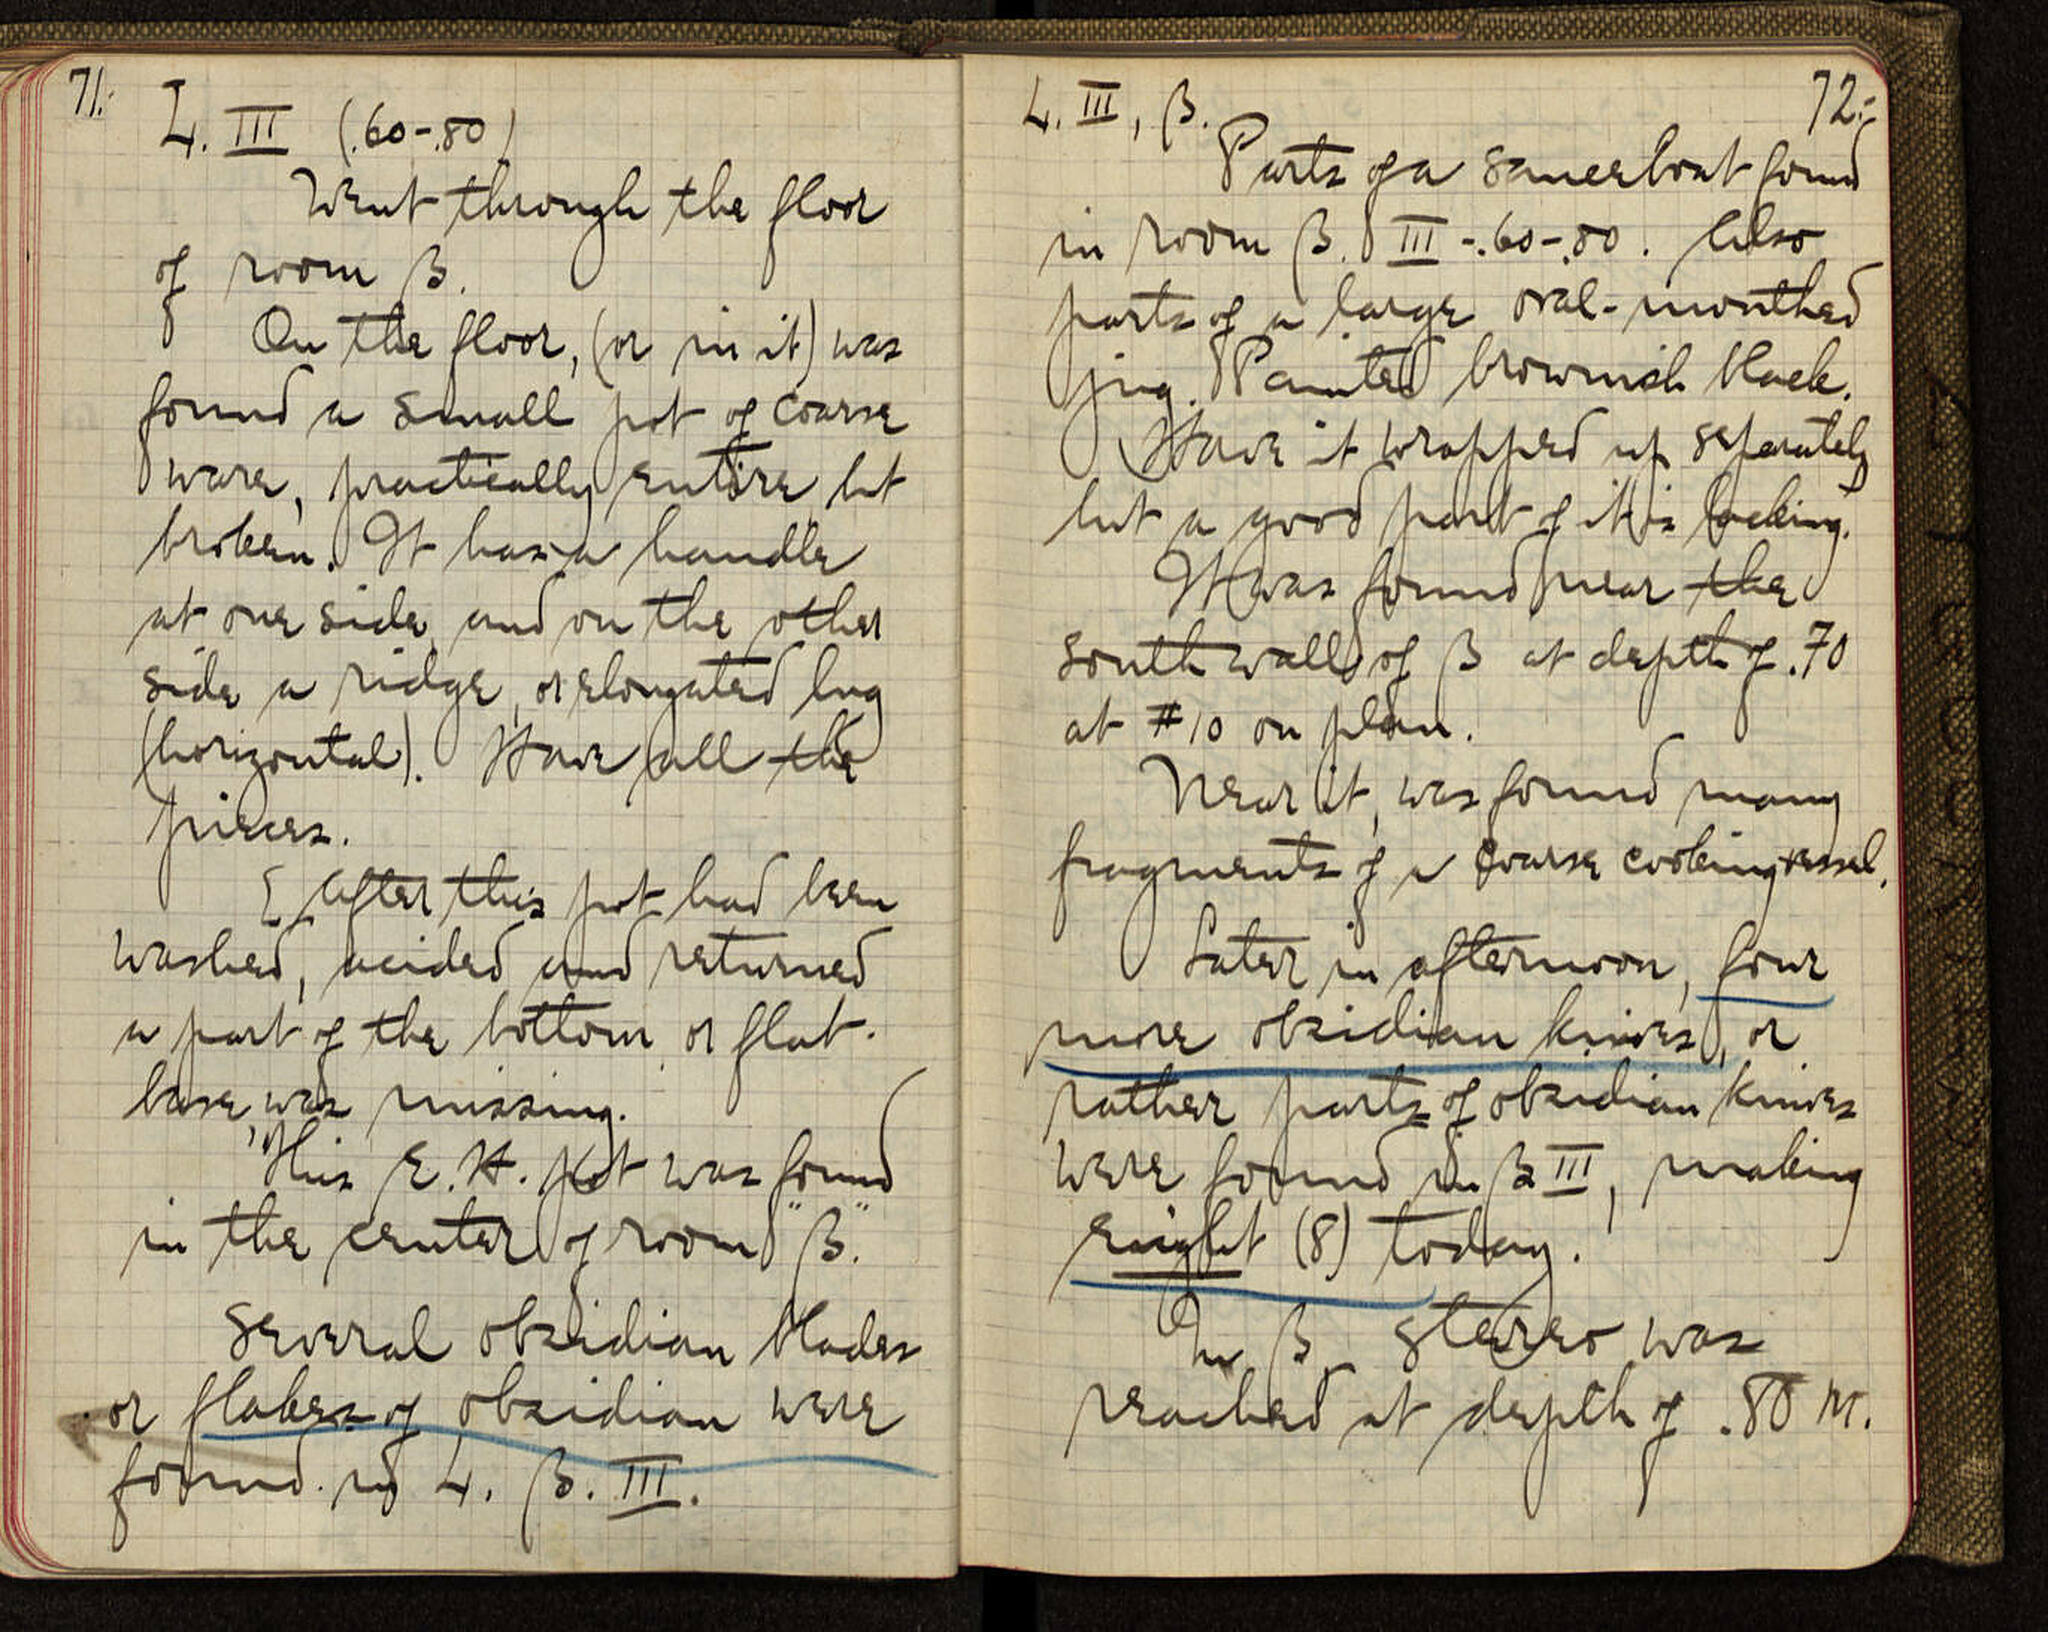 71.-
L. III (.60-.80)
Went through the floor
of room β.
On the floor, (or in it) was
found a small pot of coarse
ware, practically entire, but
broken. It has a handle
at one side, and on the other
side a ridge, or elongated lug
(horizontal). Have all the
pieces.
[After this pot had been
washed, acided and returned
a part of the bottom or flat
base, was missing.
This E.H. pot was found
in the center of room "β."
Several obsidian blades
or flakes of obsidian were
found in L. β. III.
72.-
L. III, β.
Parts of a sauceboat found
in room β. III -.60-.80. Also
parts of a large oval-mouthed
jug. Painted brownish black.
Have it wrapped up separately
but a good part of it is lacking.
It was found near the
south wall of β at depth of .70
at #10 on plan.
Near it, was found many
fragments of a coarse cooking vessel.
Later in afternoon, four
more obsidian knives, or
rather parts of obsidian knives
were found in β III, making
eight (8) today.
In β, stereo was
reached at depth of .80 m.